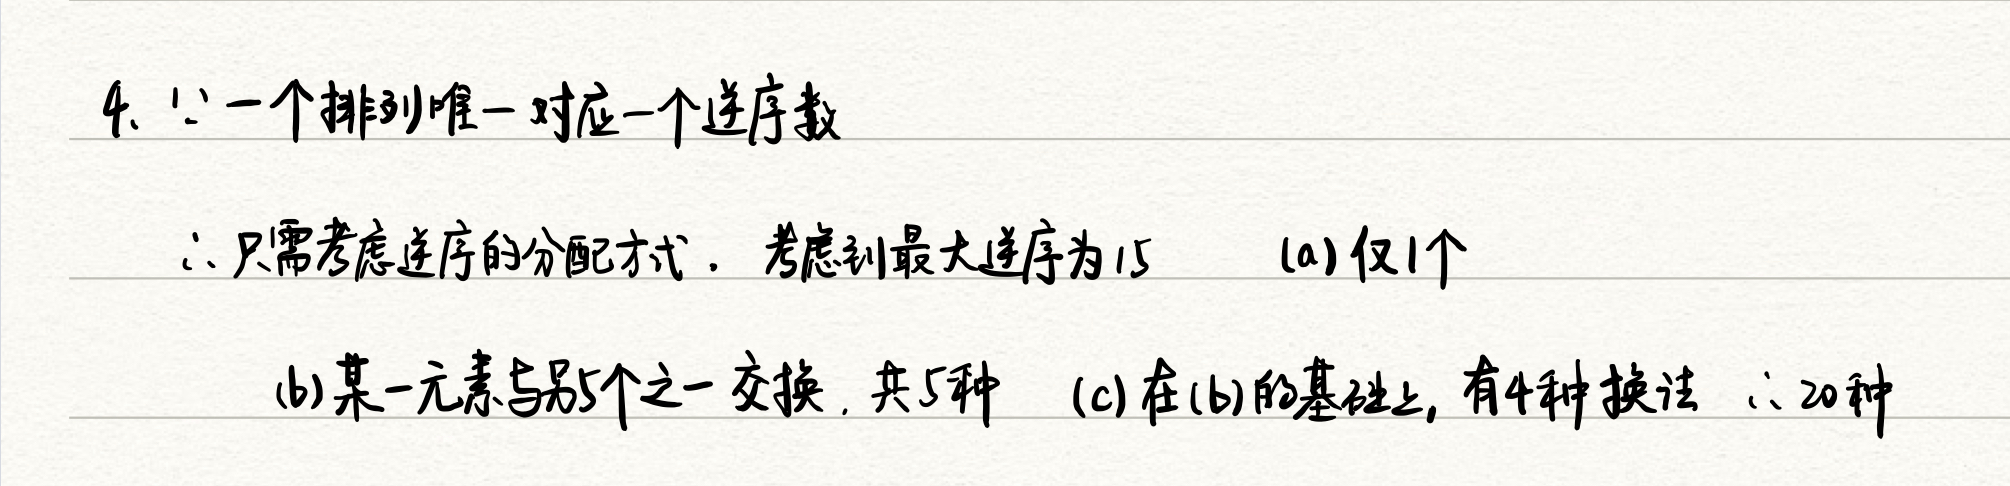 4. ∵一个排列唯一对应一个逆序数
∴只需考虑逆序的分配方式. 考虑到最大逆序为15 (a)仅1个
(b)某一元素与另5个之一交换. 共5种 (c)在(b)的基础上, 有4种换法 ∴20种